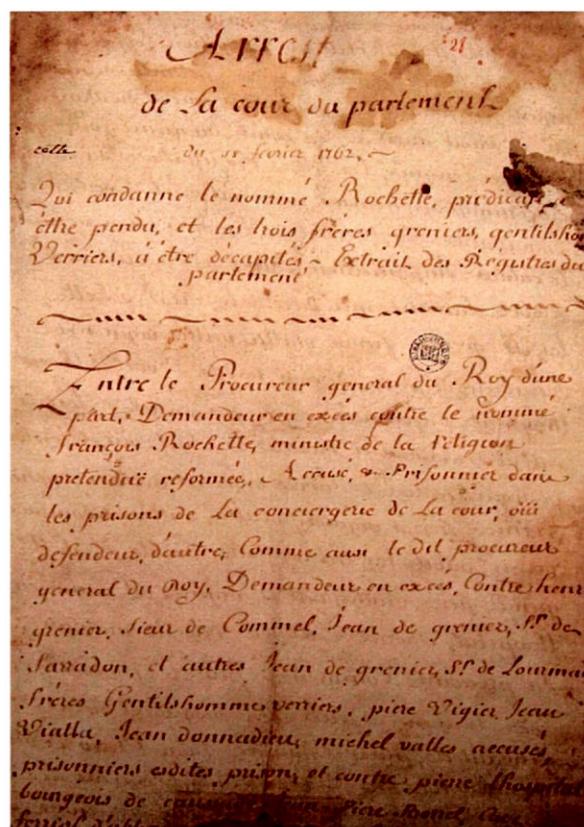 Arrest 28
de La cour du parlement
du 18 fevrier 1762.
Qui condanne le nommé Rochette, predicant
être pendu, et les trois frères greniers, gentilsho
Verriers, à être décapités - Extrait des Registres du
parlement
Entre le Procureur general du Roy d'une
part, Demandeur en excés contre le nommé
françois Rochette, ministre de la Religion
pretenduë reformée, Accusé, & Prisonnier dans
les prisons de La conciergerie de La cour, oüi
defendeur, d'autre; Comme aussi le dit procureur
general du Roy, Demandeur en excés, Contre henri
grenier, Sieur de Commel, Jean de grenier, Sr. de
Sarradon, et autres Jean de grenier, Sr. de Lourma
frères Gentilshomme verriers, piere Vigier Jean
Vialla, Jean donnadieu, michel valles accusés
prisonniers esdites prison, et contre pierre lhospital
bourgeois de